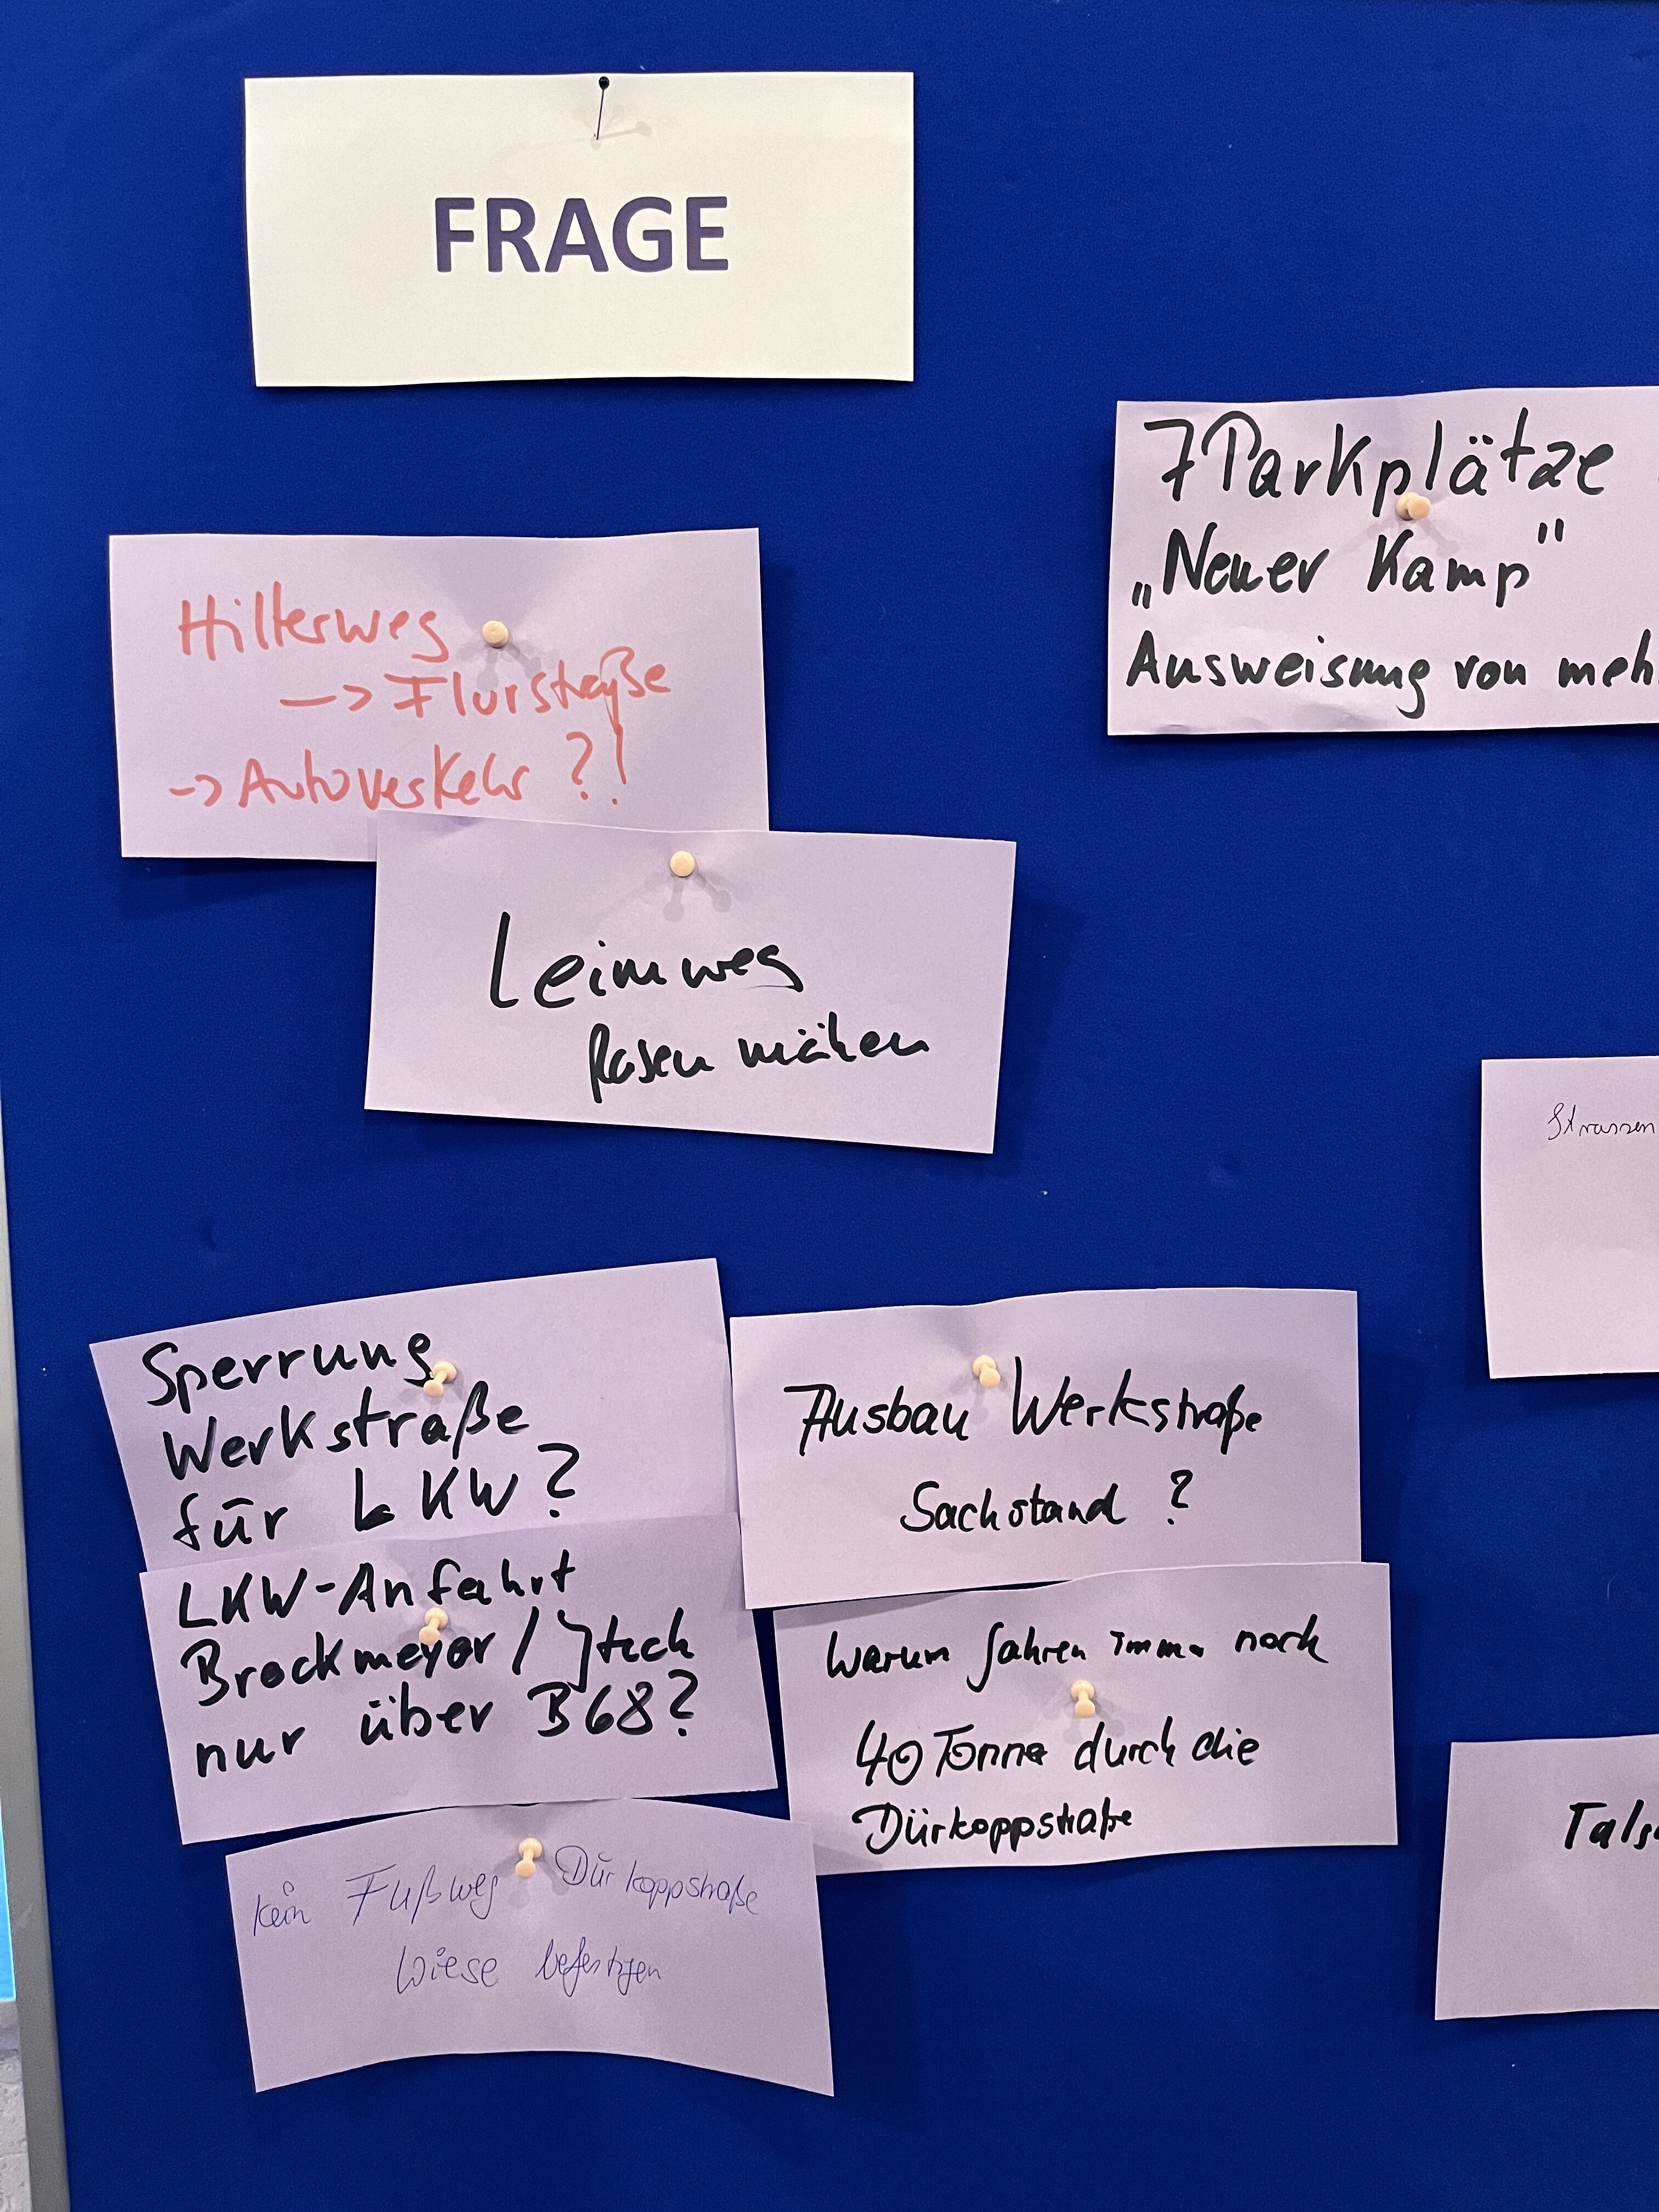 FRAGE
7 Parkplätze
„Neuer Kamp"
Ausweisung von meh
Hillerweg
-> Flurstraße
-> Autoverkehr ?!
Leimweg
Rasen mähen
Strassen
Sperrung
Werkstraße
für LKW?
Ausbau Werkstraße
Sachstand ?
LKW-Anfahrt
Brockmeyer /
nur über B68?
Warum fahren immer noch
40 Tonne durch die
Dürkoppstraße
kein Fußweg Dürkoppstraße
Wiese befestigen